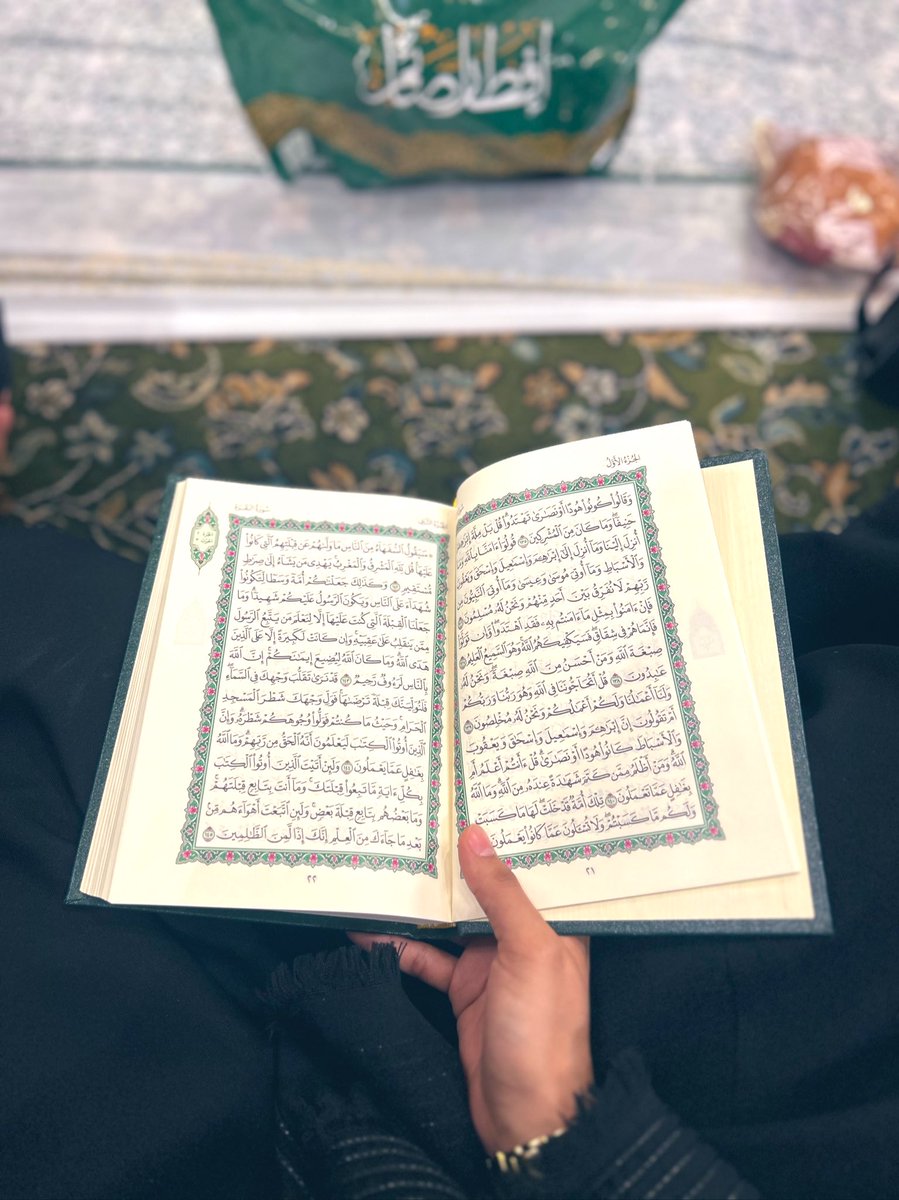 إفطار صائم
الجزء الأول
وَقَالُوا۟ كُونُوا۟ هُودًا أَوْ نَصَٰرَىٰ تَهْتَدُوا۟ ۗ قُلْ بَلْ مِلَّةَ
حَنِيفًا ۖ وَمَا كَانَ مِنَ ٱلْمُشْرِكِينَ ١٣٥ قُولُوٓا۟ ءَامَنَّا بِٱللَّهِ
أُنزِلَ إِلَيْنَا وَمَآ أُنزِلَ إِلَىٰٓ إِبْرَٰهِـۧمَ وَإِسْمَٰعِيلَ وَإِسْحَٰقَ
وَٱلْأَسْبَاطِ وَمَآ أُوتِىَ مُوسَىٰ وَعِيسَىٰ وَمَآ أُوتِىَ ٱلنَّبِيُّونَ
رَّبِّهِمْ لَا نُفَرِّقُ بَيْنَ أَحَدٍ مِّنْهُمْ وَنَحْنُ لَهُۥ مُسْلِمُونَ
فَإِنْ ءَامَنُوا۟ بِمِثْلِ مَآ ءَامَنتُم بِهِۦ فَقَدِ ٱهْتَدَوا۟ ۖ وَّإِن
فَإِنَّمَا هُمْ فِى شِقَاقٍ ۖ فَسَيَكْفِيكَهُمُ ٱللَّهُ ۚ وَهُوَ ٱلسَّمِيعُ ٱلْعَلِيمُ
صِبْغَةَ ٱللَّهِ ۖ وَمَنْ أَحْسَنُ مِنَ ٱللَّهِ صِبْغَةً ۖ وَنَحْنُ لَهُۥ
عَٰبِدُونَ ١٣٨ قُلْ أَتُحَآجُّونَنَا فِى ٱللَّهِ وَهُوَ رَبُّنَا وَرَبُّكُمْ
وَلَنَآ أَعْمَٰلُنَا وَلَكُمْ أَعْمَٰلُكُمْ وَنَحْنُ لَهُۥ مُخْلِصُونَ ١٣٩
أَمْ تَقُولُونَ إِنَّ إِبْرَٰهِـۧمَ وَإِسْمَٰعِيلَ وَإِسْحَٰقَ وَيَعْقُوبَ
وَٱلْأَسْبَاطَ كَانُوا۟ هُودًا أَوْ نَصَٰرَىٰ ۗ قُلْ ءَأَنتُمْ أَعْلَمُ أَمِ
ٱللَّهُ ۗ وَمَنْ أَظْلَمُ مِمَّن كَتَمَ شَهَٰدَةً عِندَهُۥ مِنَ ٱللَّهِ ۗ وَمَا ٱللَّهُ
بِغَٰفِلٍ عَمَّا تَعْمَلُونَ ١٤٠ تِلْكَ أُمَّةٌ قَدْ خَلَتْ ۖ لَهَا مَا كَسَبَتْ
وَلَكُم مَّا كَسَبْتُمْ ۖ وَلَا تُسْـَٔلُونَ عَمَّا كَانُوا۟ يَعْمَلُونَ
٢١
الجزء الثاني
سورة البقرة
سَيَقُولُ ٱلسُّفَهَآءُ مِنَ ٱلنَّاسِ مَا وَلَّىٰهُمْ عَن قِبْلَتِهِمُ ٱلَّتِى كَانُوا۟
عَلَيْهَا ۚ قُل لِّلَّهِ ٱلْمَشْرِقُ وَٱلْمَغْرِبُ ۚ يَهْدِى مَن يَشَآءُ إِلَىٰ صِرَٰطٍ
مُّسْتَقِيمٍ ١٤٢ وَكَذَٰلِكَ جَعَلْنَٰكُمْ أُمَّةً وَسَطًا لِّتَكُونُوا۟
شُهَدَآءَ عَلَى ٱلنَّاسِ وَيَكُونَ ٱلرَّسُولُ عَلَيْكُمْ شَهِيدًا ۗ وَمَا
جَعَلْنَا ٱلْقِبْلَةَ ٱلَّتِى كُنتَ عَلَيْهَآ إِلَّا لِنَعْلَمَ مَن يَتَّبِعُ ٱلرَّسُولَ
مِمَّن يَنقَلِبُ عَلَىٰ عَقِبَيْهِ ۚ وَإِن كَانَتْ لَكَبِيرَةً إِلَّا عَلَى ٱلَّذِينَ
هَدَى ٱللَّهُ ۗ وَمَا كَانَ ٱللَّهُ لِيُضِيعَ إِيمَٰنَكُمْ ۚ إِنَّ ٱللَّهَ
بِٱلنَّاسِ لَرَءُوفٌ رَّحِيمٌ ١٤٣ قَدْ نَرَىٰ تَقَلُّبَ وَجْهِكَ فِى ٱلسَّمَآءِ ۖ
فَلَنُوَلِّيَنَّكَ قِبْلَةً تَرْضَىٰهَا ۚ فَوَلِّ وَجْهَكَ شَطْرَ ٱلْمَسْجِدِ
ٱلْحَرَامِ ۚ وَحَيْثُ مَا كُنتُمْ فَوَلُّوا۟ وُجُوهَكُمْ شَطْرَهُۥ ۗ وَإِنَّ
ٱلَّذِينَ أُوتُوا۟ ٱلْكِتَٰبَ لَيَعْلَمُونَ أَنَّهُ ٱلْحَقُّ مِن رَّبِّهِمْ ۗ وَمَا ٱللَّهُ
بِغَٰفِلٍ عَمَّا يَعْمَلُونَ ١٤٤ وَلَئِنْ أَتَيْتَ ٱلَّذِينَ أُوتُوا۟ ٱلْكِتَٰبَ
بِكُلِّ ءَايَةٍ مَّا تَبِعُوا۟ قِبْلَتَكَ ۚ وَمَآ أَنتَ بِتَابِعٍ قِبْلَتَهُمْ ۚ
وَمَا بَعْضُهُم بِتَابِعٍ قِبْلَةَ بَعْضٍ ۚ وَلَئِنِ ٱتَّبَعْتَ أَهْوَآءَهُم مِّنۢ
بَعْدِ مَا جَآءَكَ مِنَ ٱلْعِلْمِ ۙ إِنَّكَ إِذًا لَّمِنَ ٱلظَّٰلِمِينَ ١٤٥
٢٢